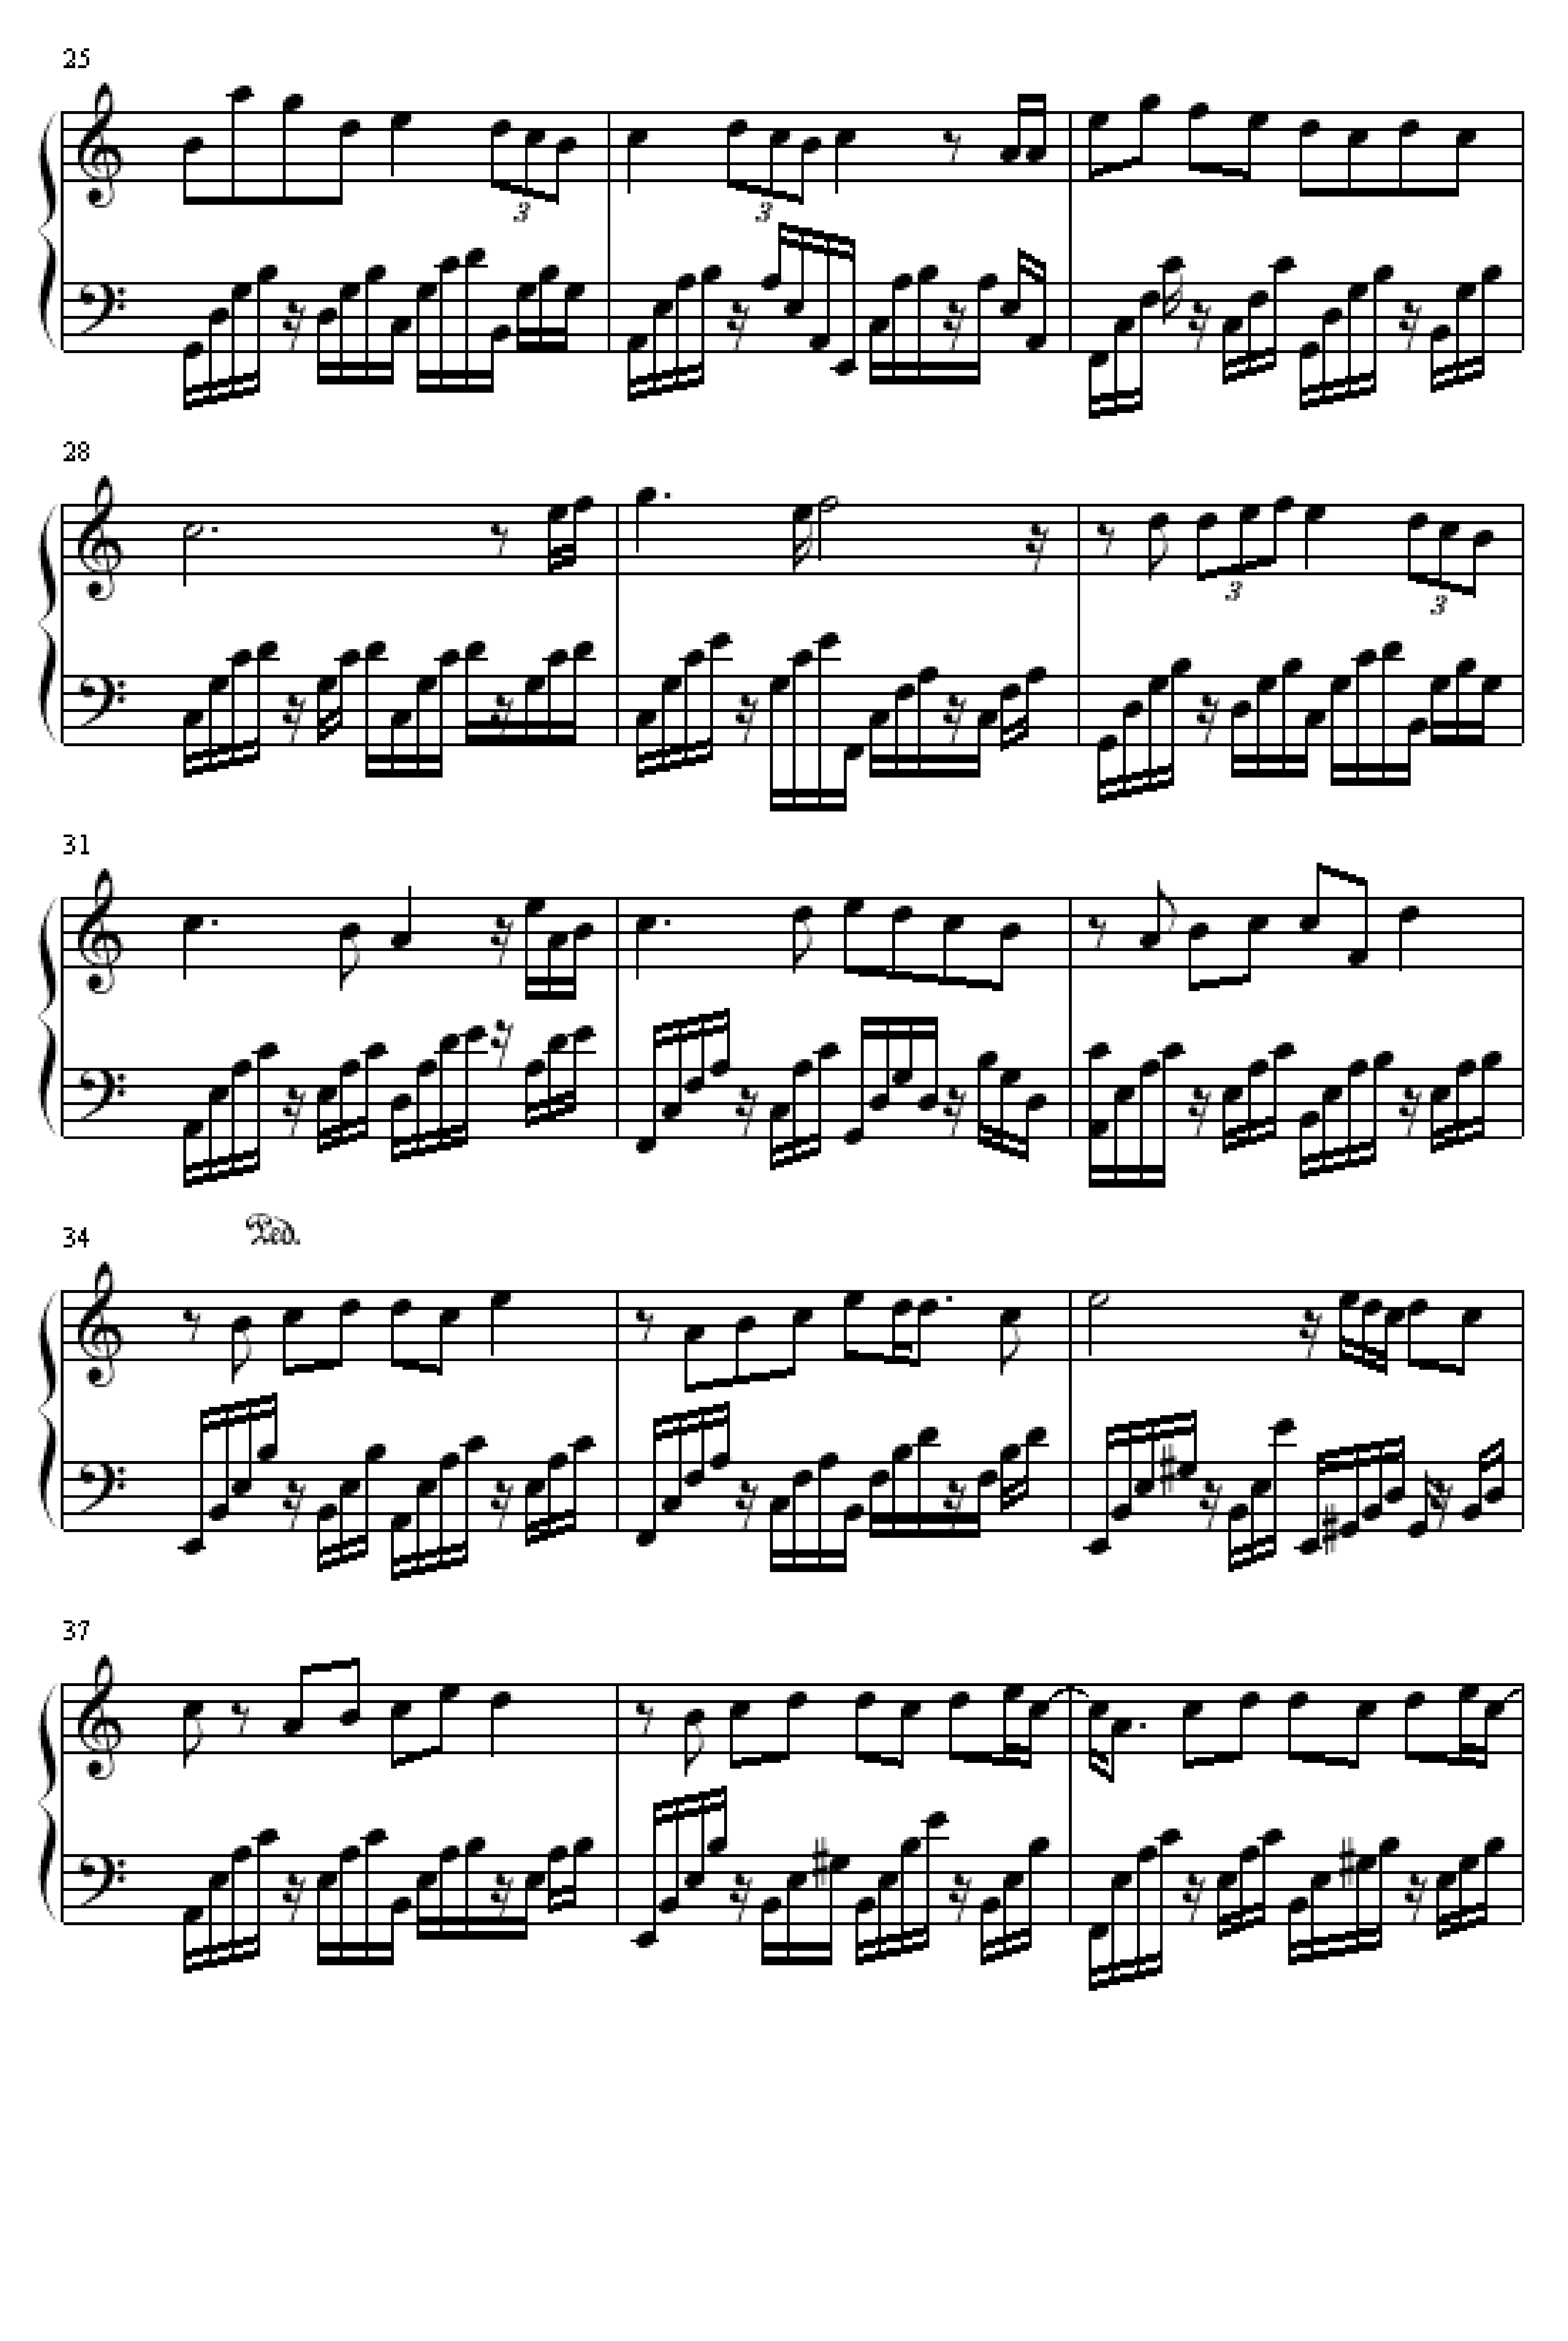 25
3
3
28
3
3
31
34
Ped.
37